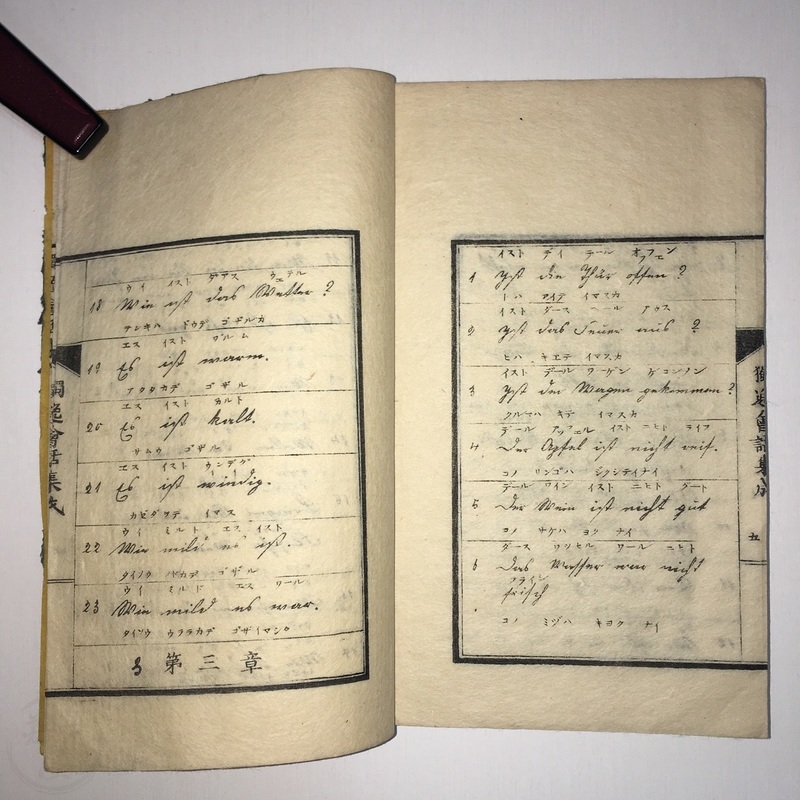 ウイ イスト ダアス ウェテル
18 Wie ist das Wetter?
テンキハ ドウデ ゴザルカ
エス イスト ワルム
19 Es ist warm.
アタタカデ ゴザル
エス イスト カルト
20 Es ist kalt.
サムウ ゴザル
エス イスト ウンデグ
21 Es ist windig.
カゼダツテ イマス
ウイ ミルト エス イスト
22 Wie mild es ist.
ゴザル
ウイ ミルド エス ワール
23 Wie mild es war.
ゴザイマシタ
3 第三章
會話集成
イスト デイ テール オッフェン
1 Ist die Thür offen?
トハ アイテ イマスカ
イスト ダース アウス
2 Ist das Feuer aus?
ヒハ キエテ イマスカ
イスト デール ワーゲン ゲコンメン
3 Ist der Wagen gekommen?
クルマハ キテ イマスカ
デール アッフェル イスト ニヒト ライフ
4 Der Apfel ist nicht reif.
コノ リンゴハ ジクシテイナイ
デール ワイン イスト ニヒト グート
5 Der Wein ist nicht gut
コノ サケハ ヨク ナイ
ダース ワッセル ワール ニヒト
6 Das Wasser war nicht
frisch
コノ ミヅハ キヨク ナイ
會話集成
五